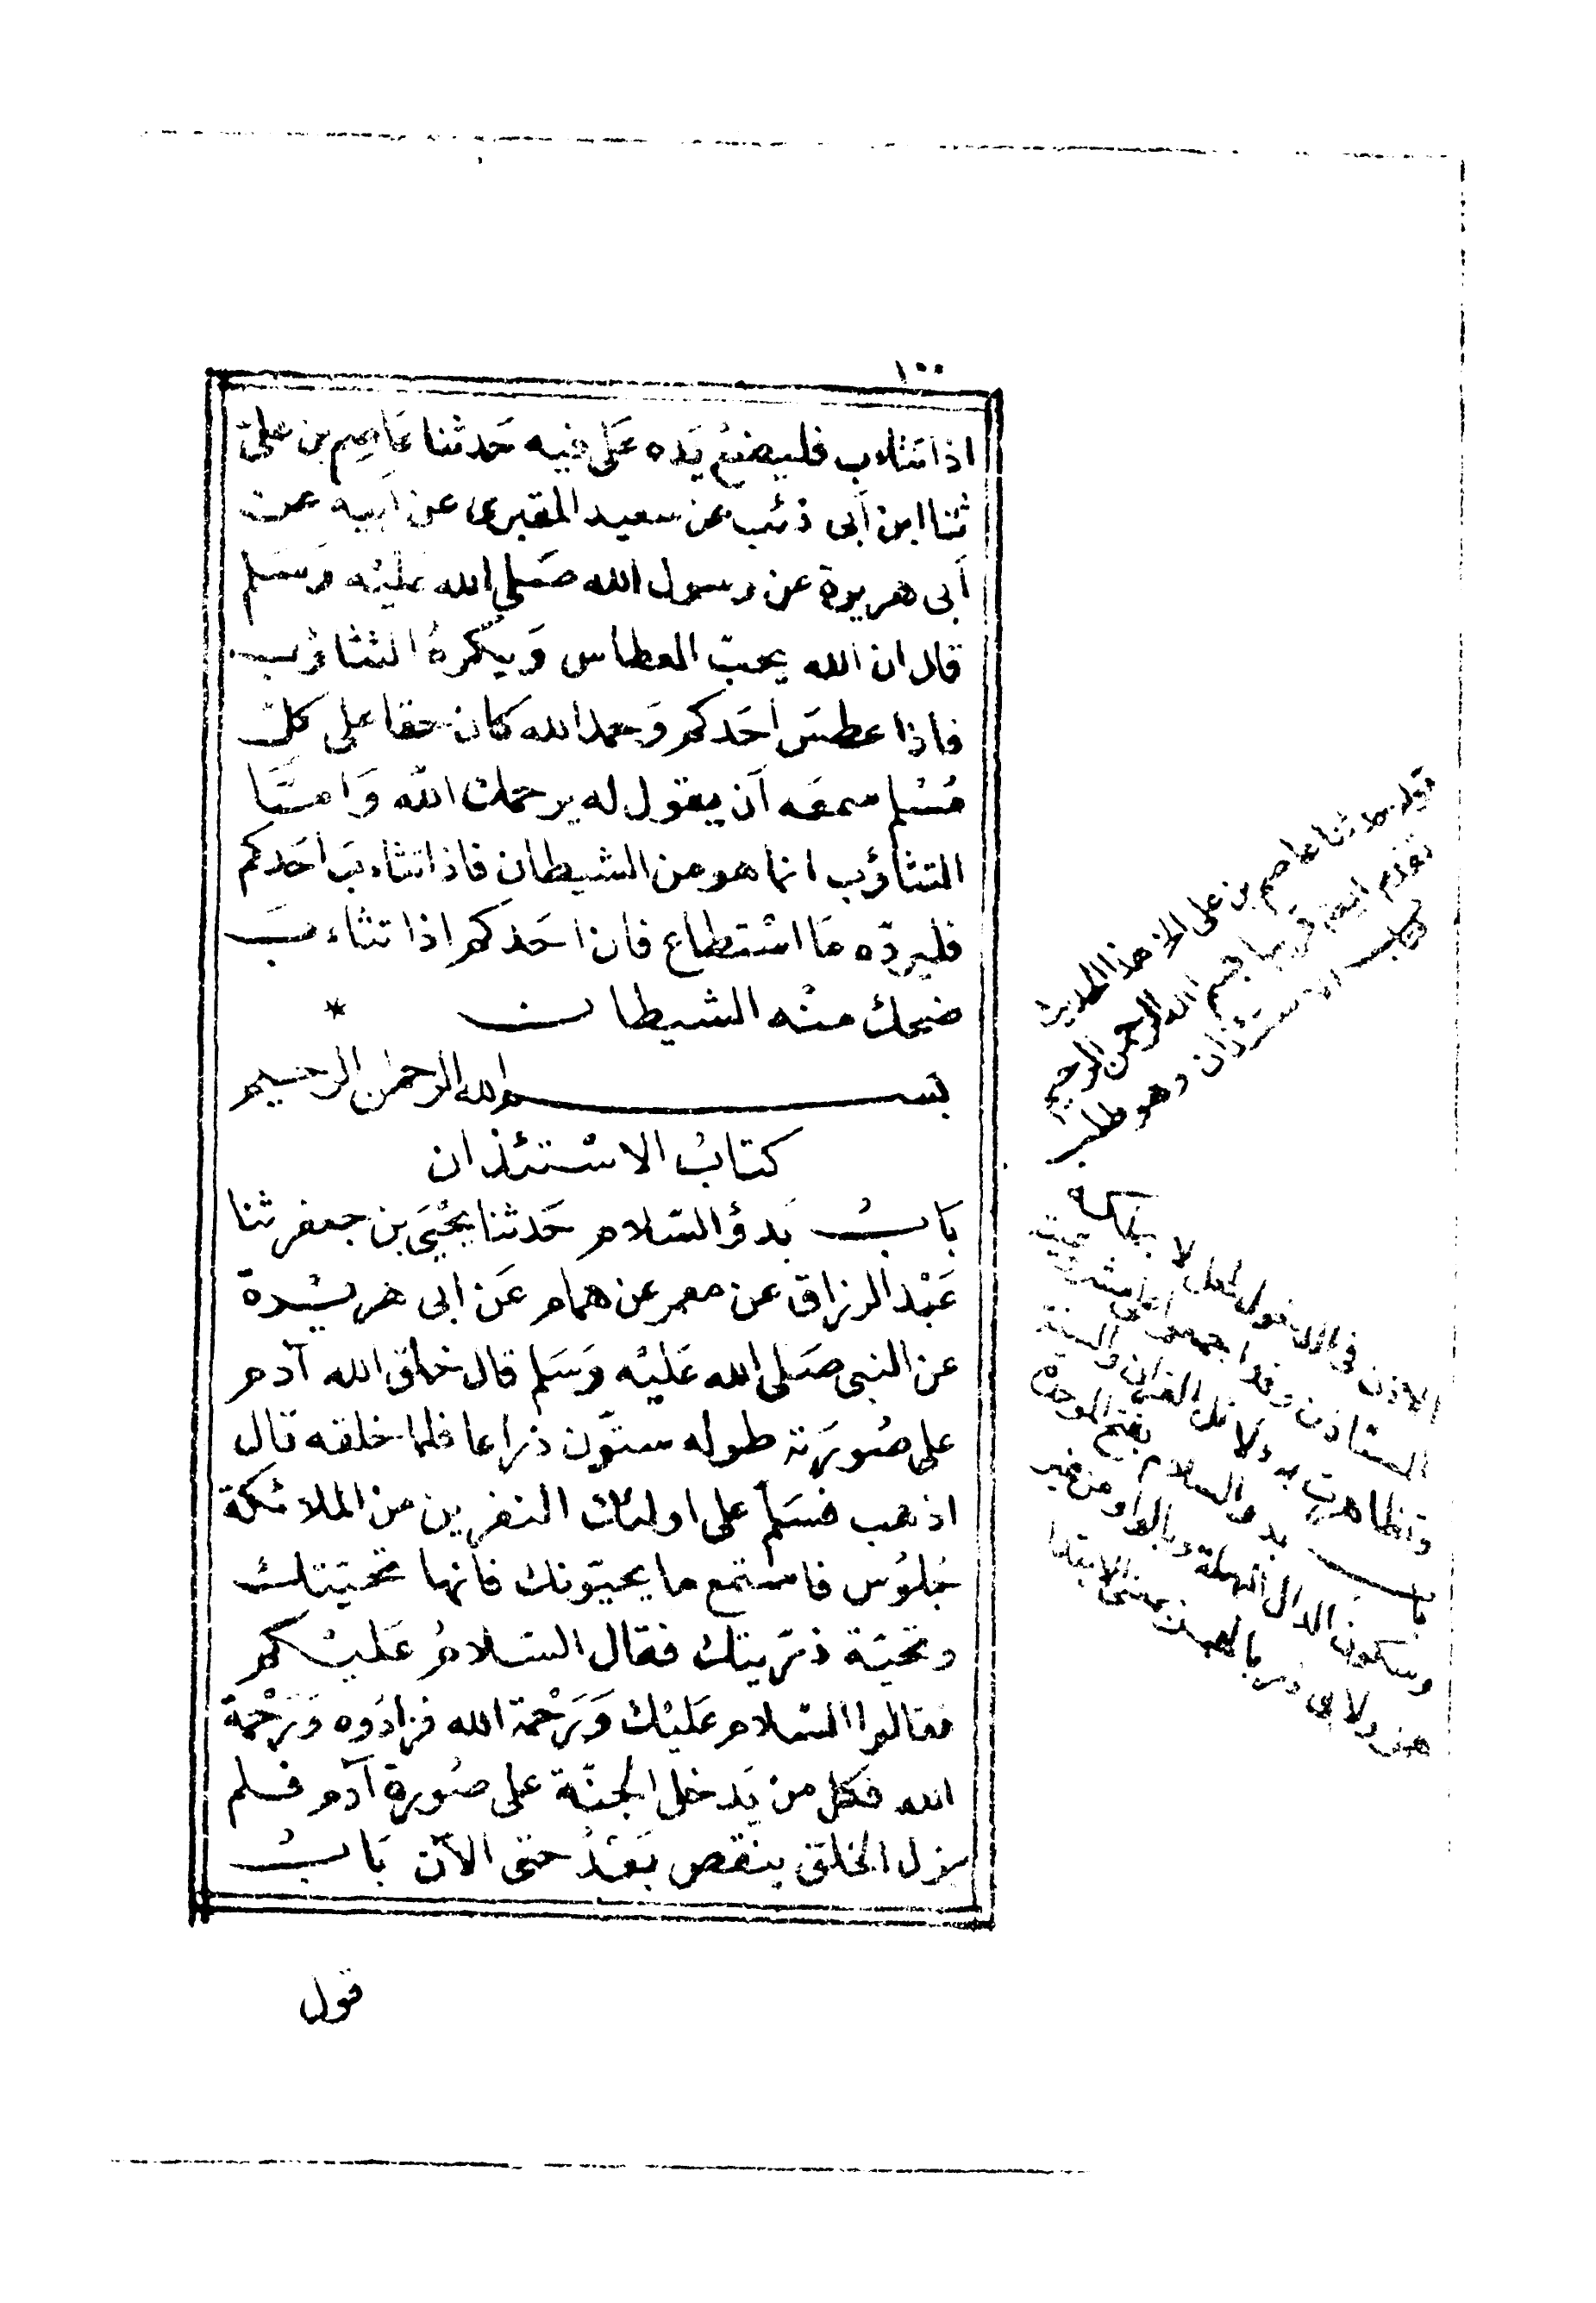 ١٠٠
اذا تثاوب فليضع يَده عَلى فيه حَدثنا عَاصِم بن علىّ
ثنا ابن أبى ذئب عن سعيد المقبرى عن اَبيه عن
اَبى هريرة عن رسول الله صَلى الله عَليْه وَسَلم
قال ان الله يحبّ العطاس وَيكرهُ التثاؤب
فاذا عطسَ اَحَدكم وَحمد الله كان حقا على كلّ
مُسْلم سمعَه اَن يقول له يرحمك الله وَامّا
التثاؤب انما هو من الشيطان فاذا تثاءبَ اَحَدكم
فليردّه مَا اسْتطاع فان احَدكم اذا تثاءبَ
ضحك منْه الشيطان *
بسم الله الرحمٰن الرحيم
كتابُ الاسْتئذان
بَابُ بَدؤ السّلام حَدثنا يَحْيَى بن جعفر ثنا
عَبْد الرزاق عن معمر عن همام عَن ابى هريْرة
عن النبى صَلى الله عَليْه وَسَلم قال خلق الله آدم
على صُورَته طوله ستّون ذراعا فلما خلقه قال
اذهب فسَلّم على اولئك النفرين من الملائكة
جُلوُس فاستمع ما يحيّونك فانها تحيّتك
وتحيّة ذرّيتك فقال السّلامُ عَليْكم
فقالوا السّلام عَليْك وَرَحْمة الله فزادَوه وَرَحْمة
الله فكل من يَدخل الجنّة على صُورة آدم فلم
يزل الخلق ينقص بَعْدُ حتى الآن بَابُ
قول
قوله حدثنا عاصم بن على الخ هذا الحديث
تقدم ايضا قريبا بسم الله الرحمن الرحيم
كتاب الاستئذان وهو طلب
الاذن فى الدخول لمحل لا يملكه
المستاذن وقد اجمعوا على مشروعيته
وتظاهرت به دلائل القران والسنة
باب بدء السلام بفتح الموحدة
وسكون الدال المهملة وبالواو من غير
همز ولابى ذر بالهمز بمعنى الابتدا